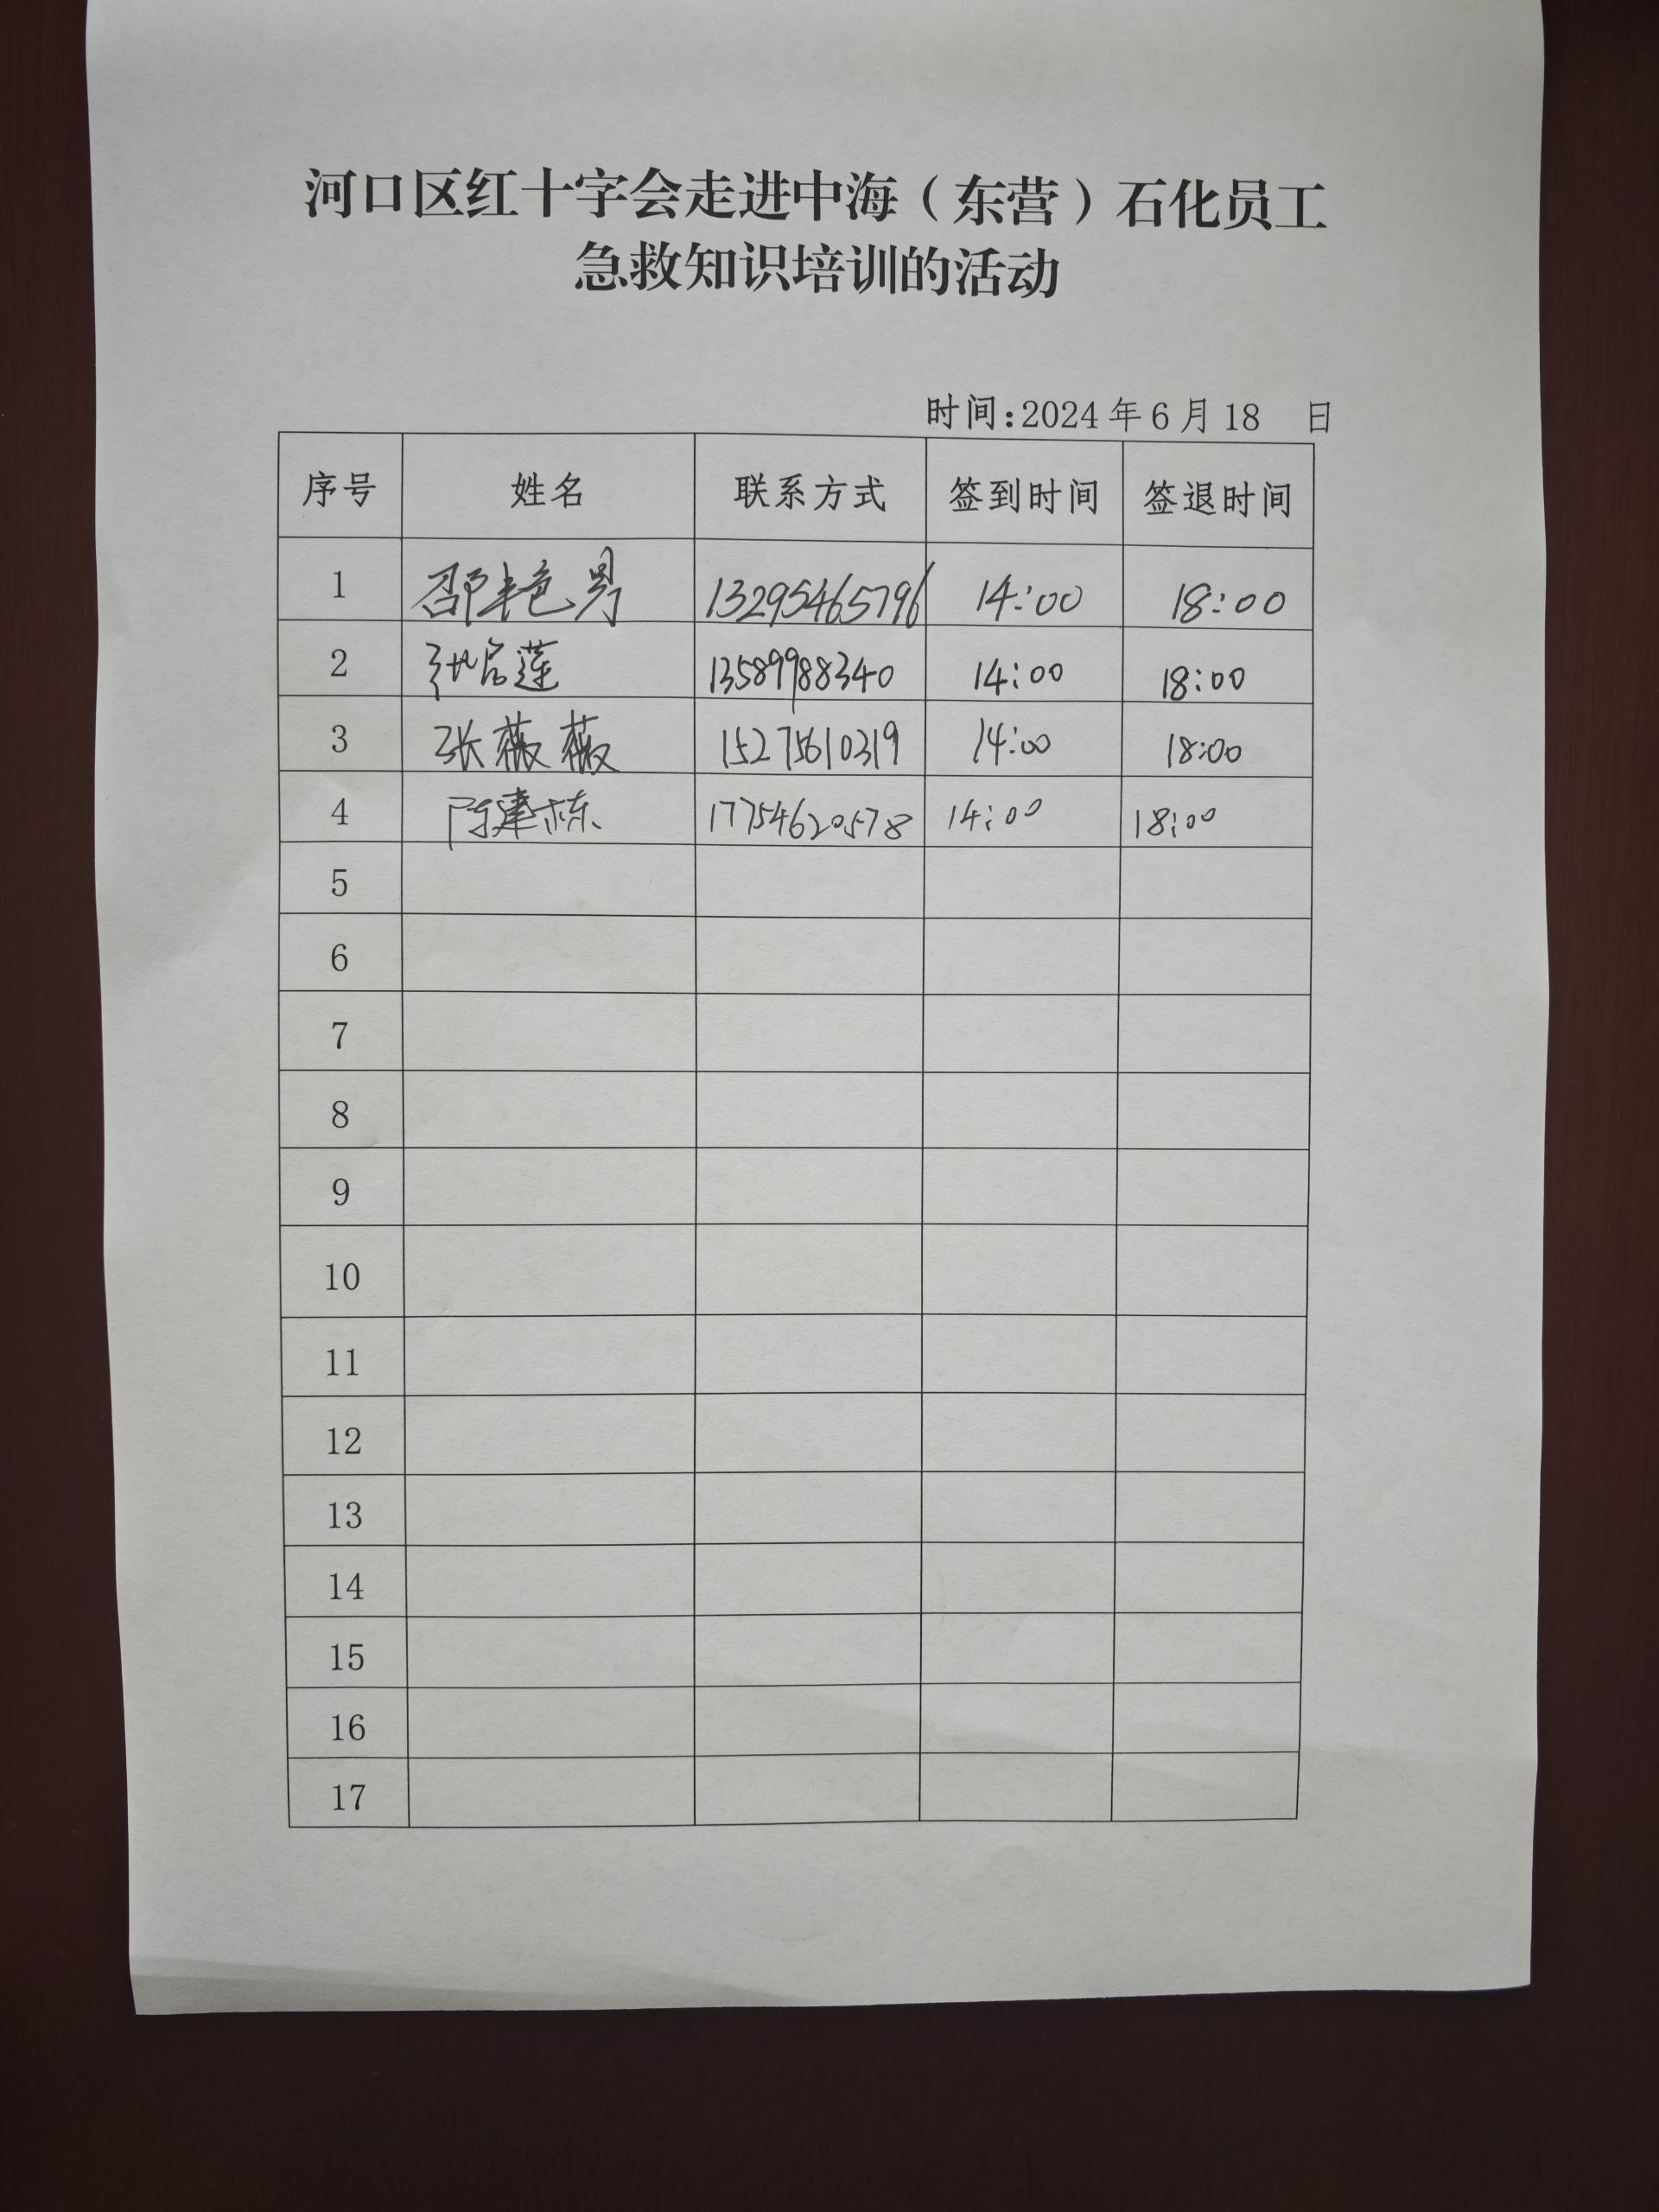 河口区红十字会走进中海（东营）石化员工
急救知识培训的活动
时间:2024年6月18 日
序号 姓名 联系方式 签到时间 签退时间
1 邵艳男 13295465796 14:00 18:00
2 13589988340 14:00 18:00
3 张薇薇 15275610319 14:00 18:00
4 陈建栋 17754620578 14:00 18:00
5
6
7
8
9
10
11
12
13
14
15
16
17